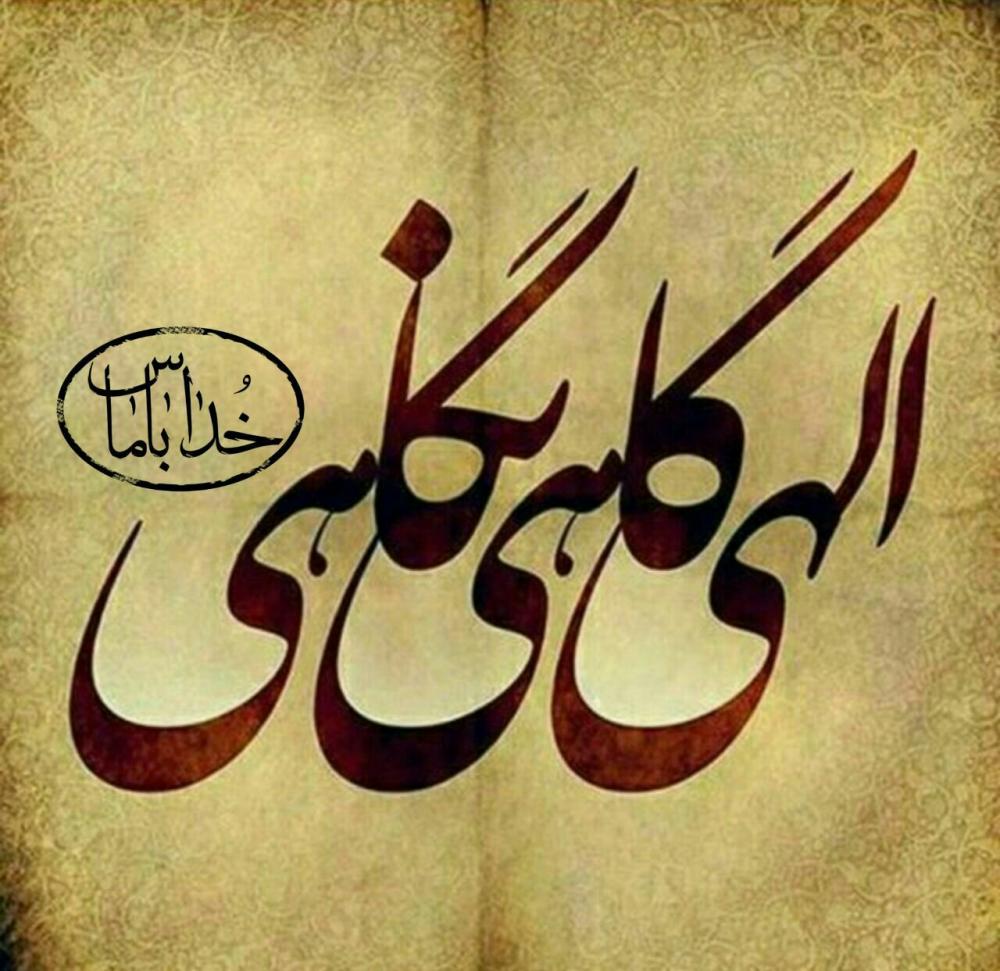 الهی گاهی نگاهی
خُدا باماس